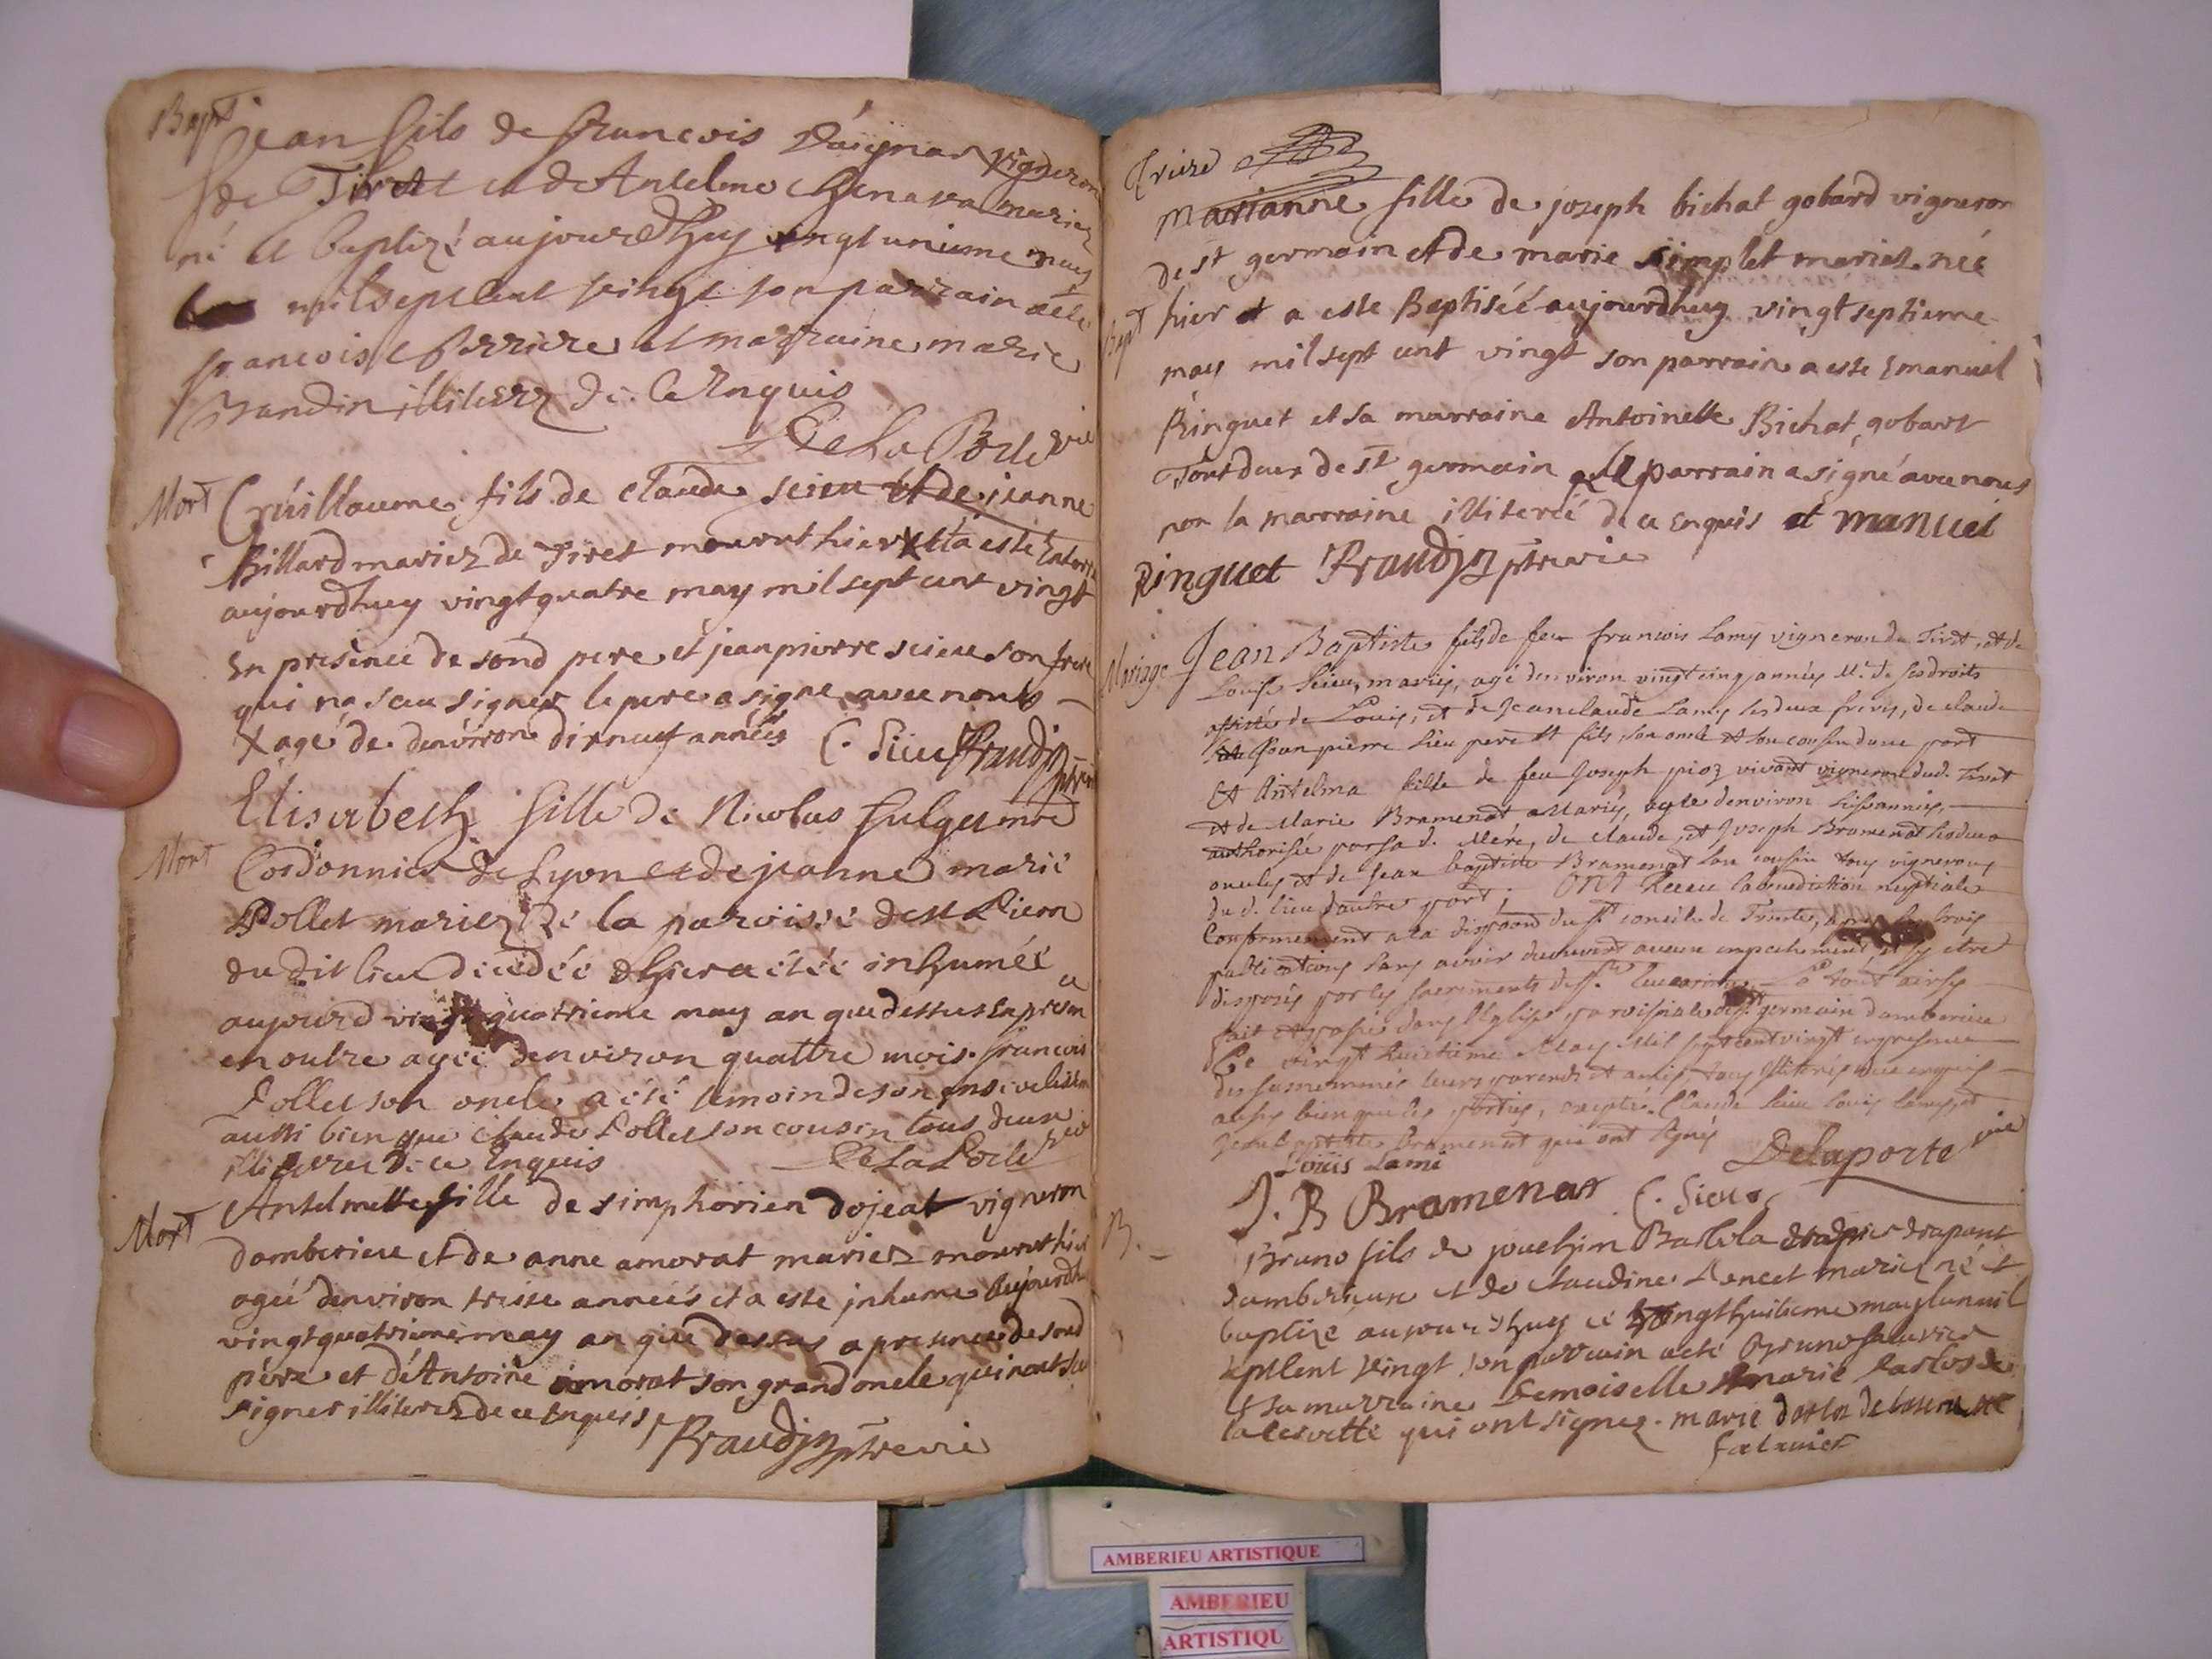 Bapt
Jean fils de francois vigneron
de Tiret et de Antelme Chenava mariez
né et baptizé aujourdhuy vingt unieme may
mil sept cent vingt son parrain a été
francois ferriere et marraine marie
illiterez de ce Enquis
De La Porte
Mort Guillaume fils de claude sieu et de jeanne
Billard mariez de Tiret mourut hier X et a este Enterré
aujourdhuy vingt quatre may mil sept cent vingt
En presence de sond pere et jean pierre sieu son frere
qui na sceu signer le pere a signe avec nous
X agé de denviron dixneuf années C. Sieu
Elisabeth fille de Nicolas
Mort
Cordonnier de Lyon et de jeanne marie
Pollet mariez de la paroisse de st Pierre
du dit lieu decedée dhier a étée inhumée
aujourd vingt quatrieme may an que dessus
en outre agée denviron quattre mois. francois
Pollet son oncle a été temoin de son
aussi bien que claude Pollet son cousin tous deux
illiterez de ce Enquis De La Porte
Mort Antelmette fille de simphorien dojeat vigneron
damberieu et de anne amorat mariez mourut hier
ageé denviron treize années et a este inhume Aujourdh
vingt quatrieme may an que dessus a presence de sond
père et d'Antoine amorat son grand oncle qui nont sceu
signer illiterez de ce Enquis
Treize
Marianne fille de joseph bichat gobard vigneron
de st germain et de marie simplet mariez née
Bapt hier et a este Baptisée aujourdhuy vingt septieme
may mil sept cent vingt son parrain a este Emanuel
Ringuet et sa marraine Antoinette Bichat gobart
Tout deux de st germain le parrain a signé avec nous
non la marraine illitereé de ce Enquis et manuel
Ringuet
Mariage Jean Baptiste fils de feu francois Lamy vigneron de Tiret, et de
Louise Sieu, mariés, agé denviron vingt cinq années M. de ses droits
assisté de Louis, et de Jean claude Lamy ses deux freres, de claude
et Jean pierre Sieu pere et fils, son oncle et son cousin dune part
Et Antelma fille de feu Joseph pioz vivant vigneron dud. Tiret
et de Marie Bramenat, Mariés, agée denviron
authorisée par sa d. Mere, de claude, et Joseph Bramenat ses deux
oncles et de Jean baptiste Bramenat son cousin tous vignerons
du d. lieu dautre part; ONT Receu la benediction nuptiale
Conformement a la du st concile de Trente, trois
publications sans avoir decouvert aucun empechement, et sy etre
disposés par les sacrements Le tout ainsy
fait et passé dans l'Eglise paroissiale de st. germain damberieu
Ce vingt huitieme May Mil sept cent vingt en presence
des susnommés leurs parents et amis, tous illiterés de ce enquis
aussy bien que les parties, excepté Claude Sieu Louis Lamy, et
Jean baptiste Bramenat qui ont signés
Louis Lami Delaporte
J. B Bramenat C. Sieu
B. Bruno fils de jouachim drapier drapant
damberieux et de claudine mariez né et
baptizé aujourdhuy ce vingt huitieme may
sept cent vingt son parrain a été Bruno
et sa marraine Demoiselle marie
qui ont signez. marie
AMBERIEU ARTISTIQUE
AMBERIEU
ARTISTIQU